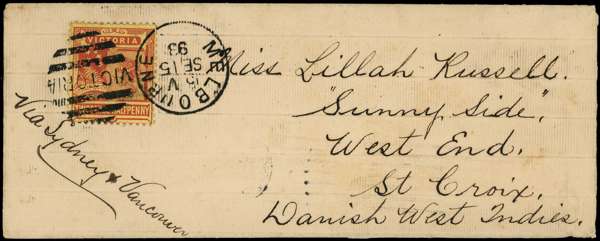 VICTORIA
PENNY
VICTORIA
MELBOURNE
15 V
SE 15
93
Miss Lillah Russell.
"Sunny Side",
West End.
St Croix.
Danish West Indies.
Via Sydney & Vancouver